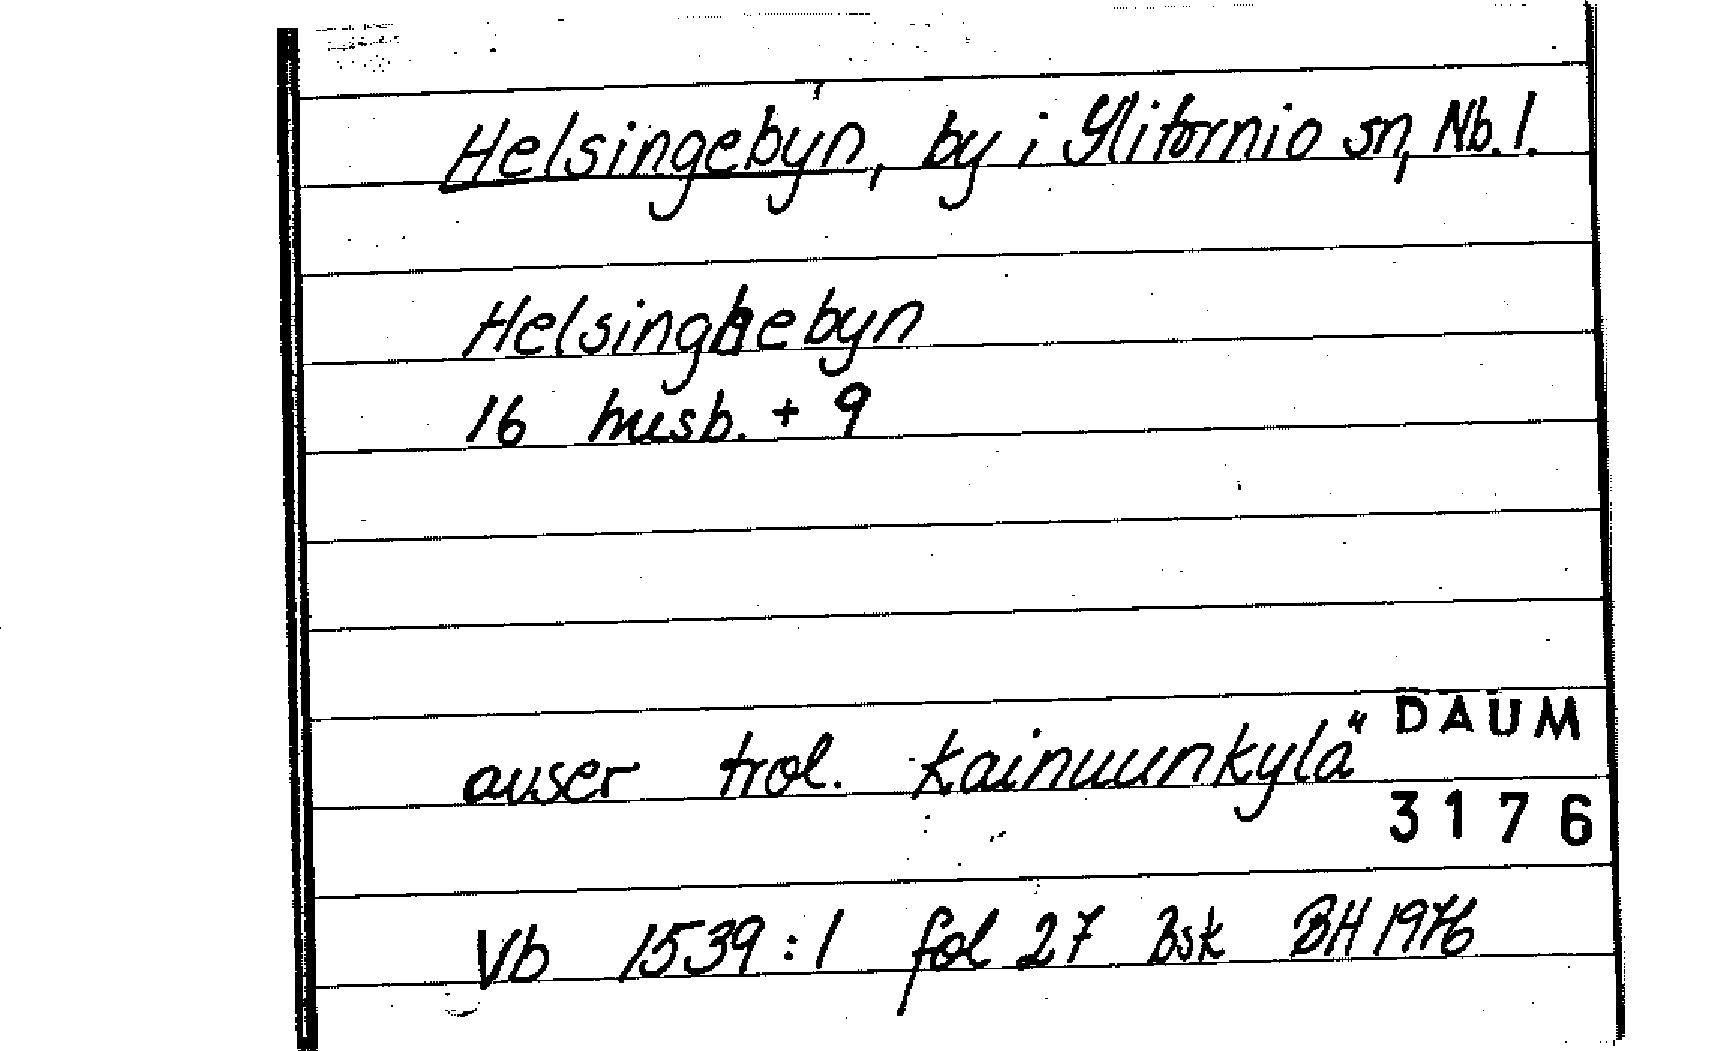 Helsingebyn, by i Ylitornio sn, Nb. l.
Helsinghebyn
16 husb. + 9
DAUM
auser trol. Kainuunkylä
3176
Vb 1539:1 fol 27 Bsk BH 1976